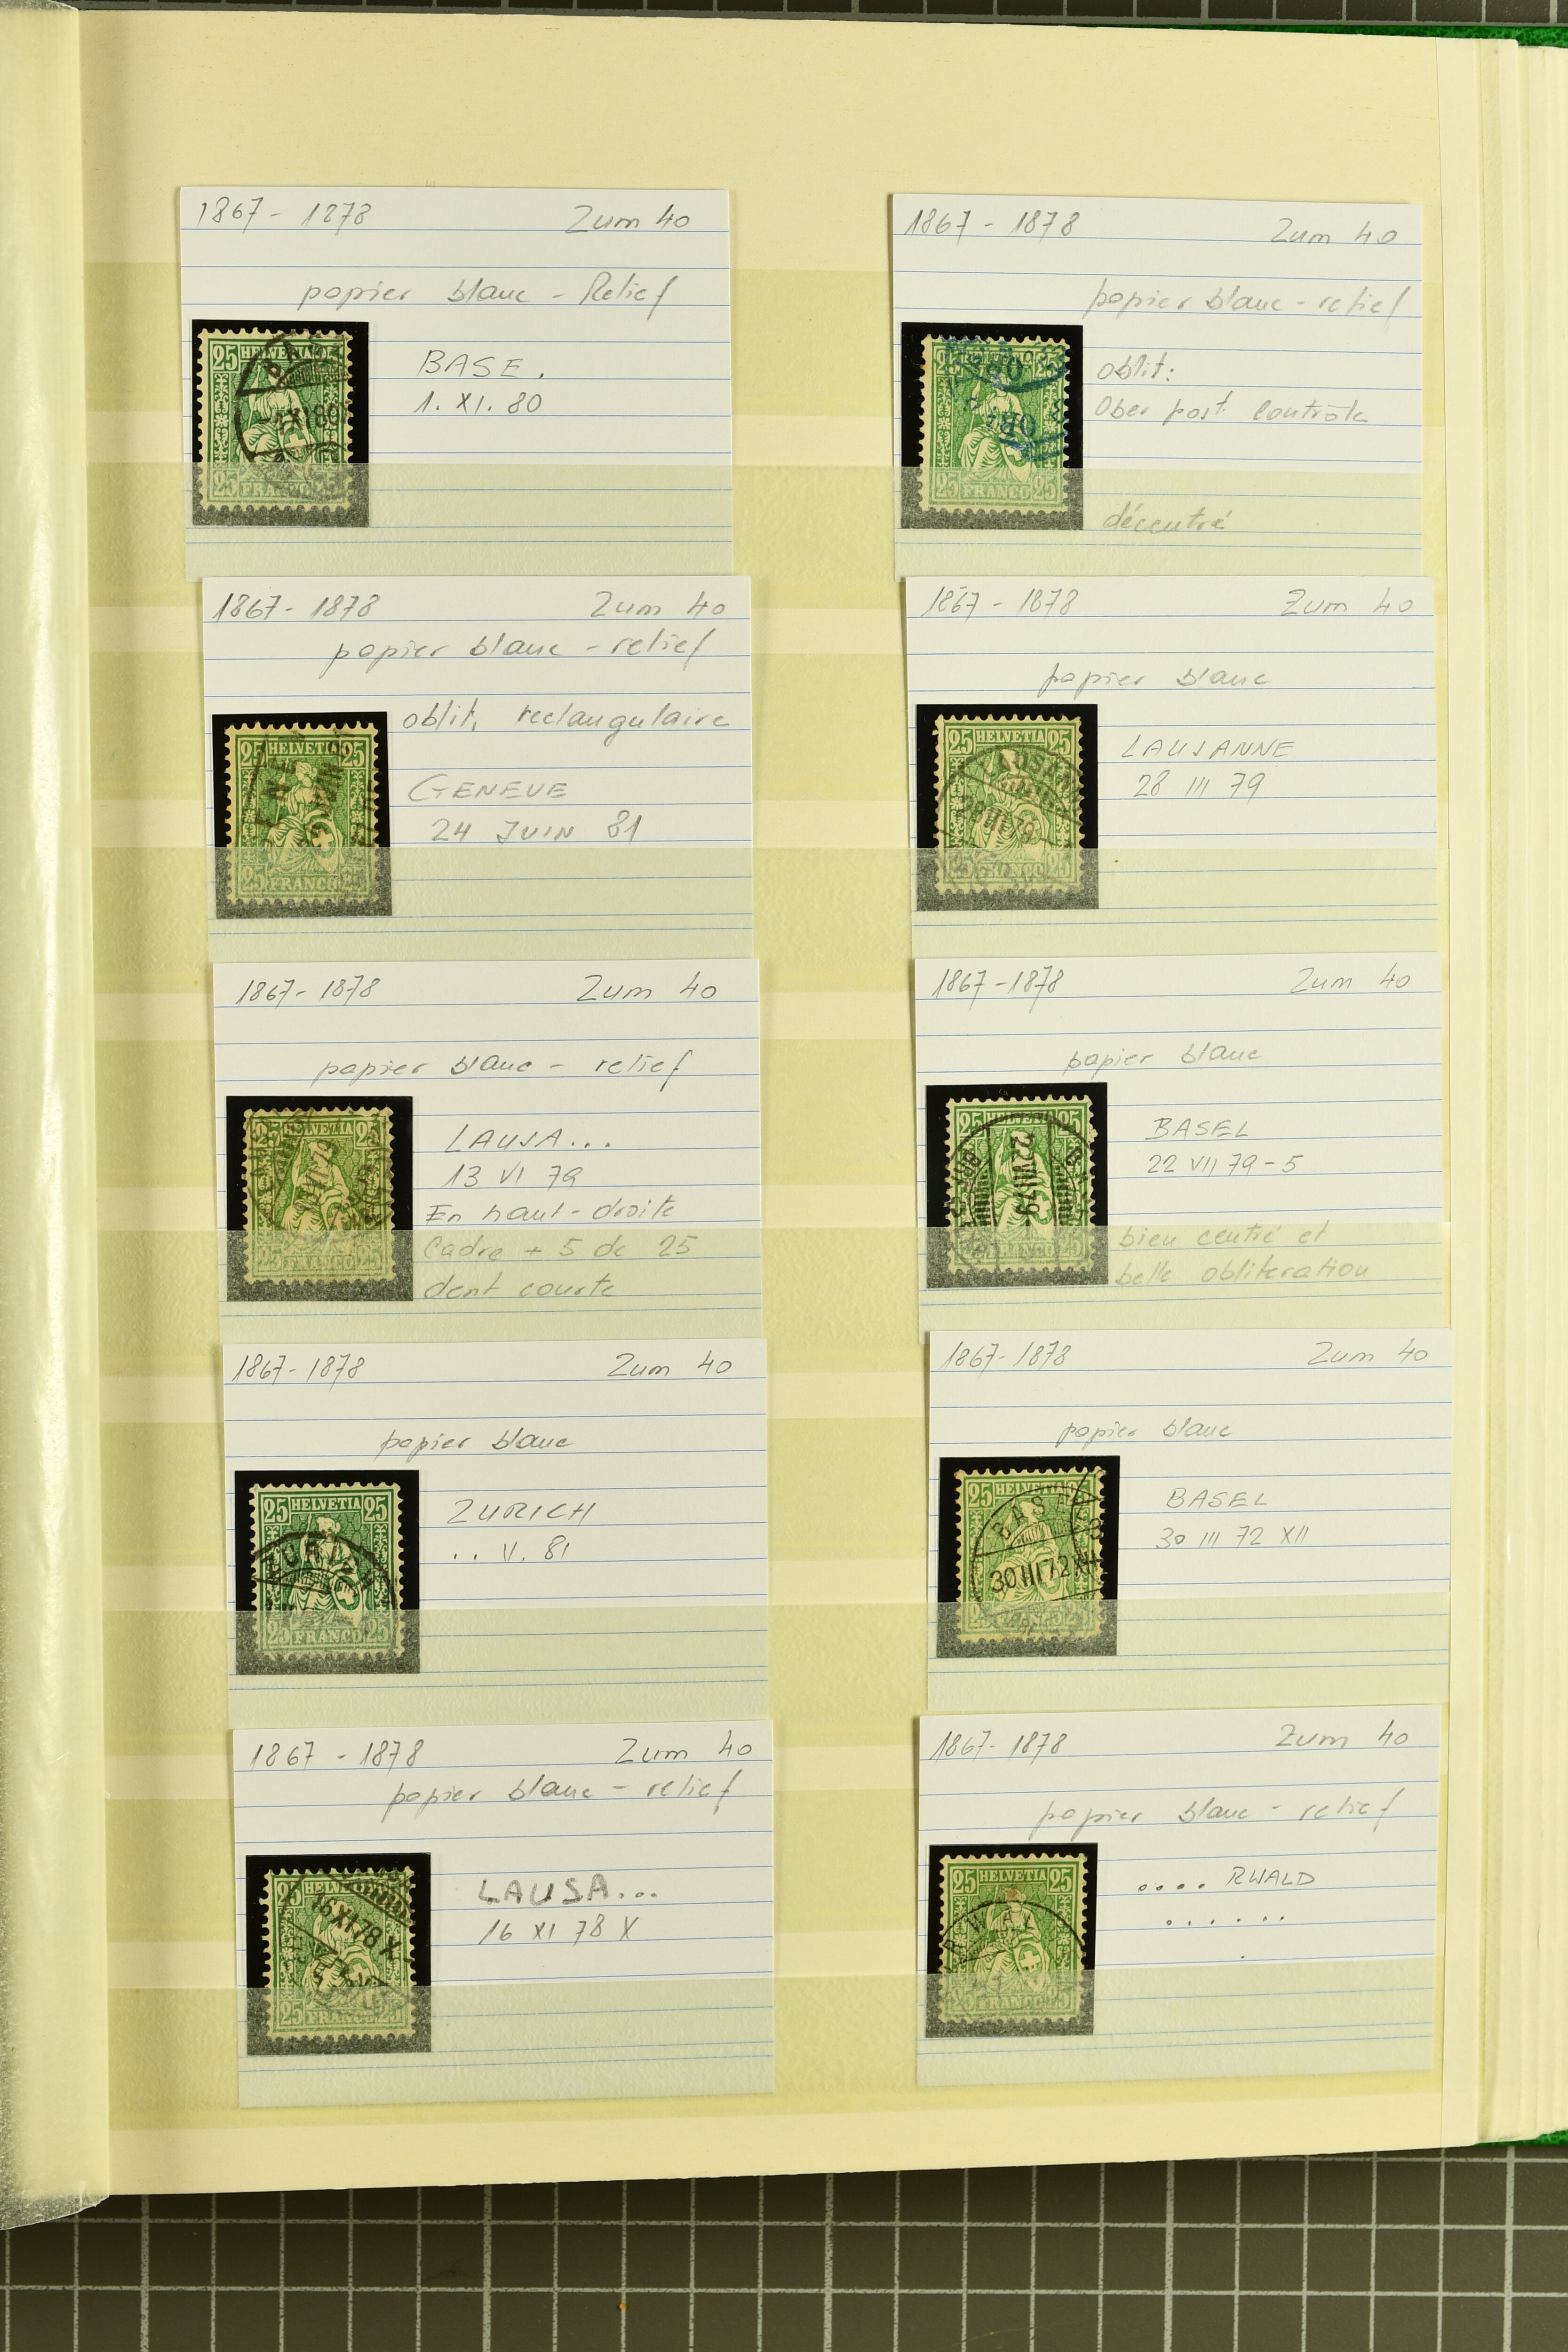 1867 - 1878 Zum 40
papier blanc - Relief
25 HELVETIA
BASE.
1. XI. 80
25 FRANCO 25
1867 - 1878 Zum 40
papier blanc - relief
oblit:
Ober post. Contrôle
25 FRANCO 25
décentré
1867 - 1878 Zum 40
papier blanc - relief
oblit. rectangulaire
25 HELVETIA 25
GENEVE
24 JUIN 81
25 FRANCO 25
1867 - 1878 Zum 40
papier blanc
25 HELVETIA 25
LAUSANNE
28 III 79
1867 - 1878 Zum 40
papier blanc - relief
25 HELVETIA 25
LAUSA...
13 VI 79
En haut-droite
Cadre + 5 de 25
dent courte
25 FRANCO 25
1867 - 1878 Zum 40
papier blanc
25 HELVETIA 25
BASEL
22 VII 79 - 5
bien centré et
belle obliteration
1867 - 1878 Zum 40
papier blanc
25 HELVETIA 25
ZURICH
.. V. 81
25 FRANCO 25
1867 - 1878 Zum 40
papier blanc
25 HELVETIA
BASEL
30 III 72 XII
1867 - 1878 Zum 40
papier blanc - relief
25 HELVETIA
LAUSA...
16 XI 78 X
25 FRANCO 25
1867 - 1878 Zum 40
papier blanc - relief
25 HELVETIA 25
.... RWALD
......
.
25 FRANCO 25